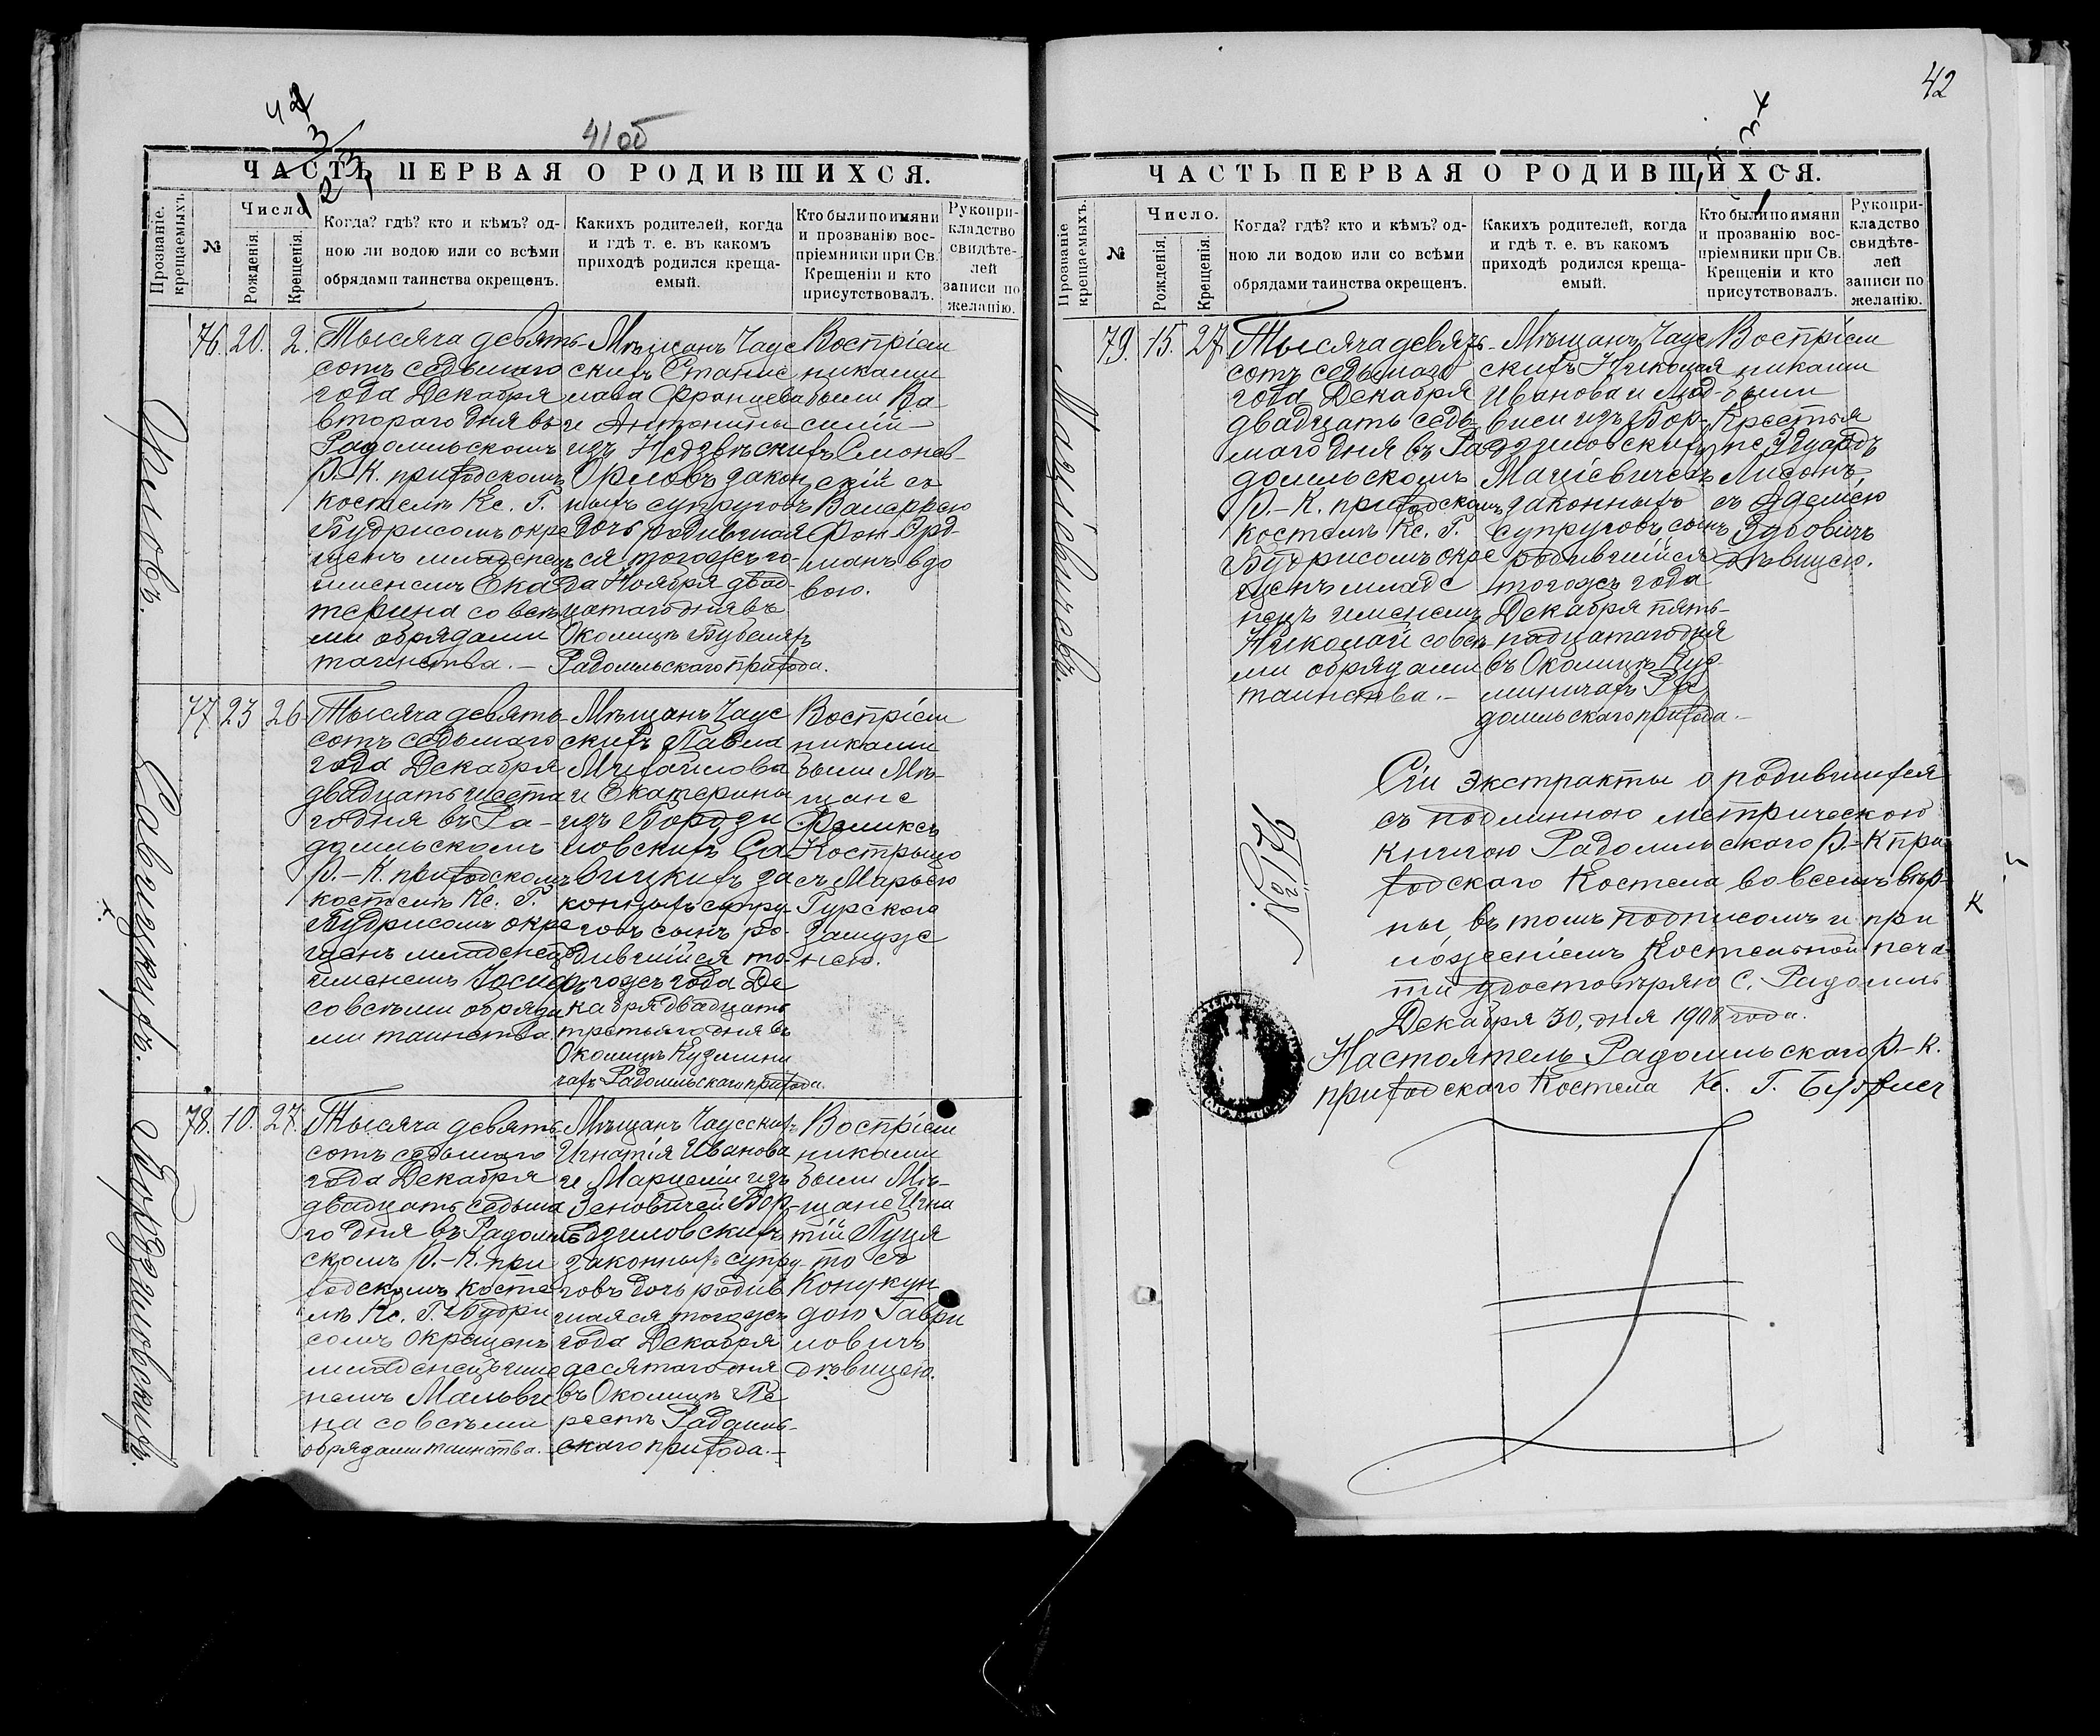 41об
ЧАСТЬ ПЕРВАЯ О РОДИВШИХСЯ.
Прозваніе крещаемыхъ.
№
Число.
Рожденія.
Крещенія.
Когда? гдѣ? кто и кѣмъ? од-
ною ли водою или со всѣми
обрядами таинства окрещенъ.
Какихъ родителей, когда
и гдѣ т. е. въ какомъ
приходѣ родился креща-
емый.
Кто были по имяни
и прозванію вос-
пріемники при Св.
Крещеніи и кто
присутствовалъ.
Рукопри-
кладство
свидѣте-
лей
записи по
желанію.
Орловъ.
76. 20. 2.
Тысяча девять
сотъ седьмаго
года Декабря
втораго дня въ
Радомльскомъ
Р.-К. приходскомъ
костелѣ Кс. Г.
Будрисомъ окре
щенъ младенецъ
именемъ Ека
терина со всѣ
ми обрядами
таинства.—
Мѣщанъ Чаус
скихъ Станис
лава Францева
и Антонины
изъ Недзвѣскихъ
Орловъ закон
ныхъ супруговъ
дочь родившая
ся тогожъ го-
да Ноября двад-
цатаго дня въ
Околицѣ
Радомльскаго прихода.
Воспріем
никами
были Ва
силій
скій съ
Валеріею
Фон
вдо
вою.
Савицкихъ.
77. 23 26
Тысяча девять
сотъ седьмаго
года Декабря
двадцать шеста
го дня въ Ра-
домльскомъ
Р.-К. приходскомъ
костелѣ Кс. Г.
Будрисомъ окре
щенъ младенецъ
именемъ Іосифъ
со всѣми обряда
ми таинства.
Мѣщанъ Чаус
скихъ Павла
Михайлова
и Екатерины
изъ Бордзи
ловскихъ Са
вицкихъ за
конныхъ супру
говъ сынъ ро-
дившійся то-
гожъ года Де
кабря двадцать
третьяго дня въ
Околицѣ Кузмини
чахъ Радомльскаго прихода.
Воспріем
никами
были Мѣ-
щане
Феликсъ
Кострыцо
съ Марьею
Гурскою
замуж
нею.
Бордзиловскихъ.
78. 10. 27.
Тысяча девять
сотъ седьмаго
года Декабря
двадцать седьма
го дня въ Радомль
скомъ Р.-К. при
ходскомъ косте
лѣ Кс. Г. Будри
сомъ окрещенъ
младенецъ име
немъ Мальви
на со всѣми
обрядами таинства.—
Мѣщанъ Чаусскихъ
Игнатія Иванова
и Марцеліи изъ
Зеновичей Бор-
дзиловскихъ
законныхъ супру
говъ дочь родив
шаяся тогожъ
года Декабря
десятаго дня
въ Околицѣ Пе
рестѣ Радомль-
скаго прихода.—
Воспріем
никами
были Мѣ-
щане Игна
тій Пуця
то съ
Кону­кун
дою Гаври
ловичъ
дѣвицею.
42
ЧАСТЬ ПЕРВАЯ О РОДИВШИХСЯ.
Прозваніе крещаемыхъ.
№
Число.
Рожденія.
Крещенія.
Когда? гдѣ? кто и кѣмъ? од-
ною ли водою или со всѣми
обрядами таинства окрещенъ.
Какихъ родителей, когда
и гдѣ т. е. въ какомъ
приходѣ родился креща-
емый.
Кто были по имяни
и прозванію вос-
пріемники при Св.
Крещеніи и кто
присутствовалъ.
Рукопри-
кладство
свидѣте-
лей
записи по
желанію.
Маціевичевъ.
79. 15. 27.
Тысяча девять
сотъ седьмаго
года Декабря
двадцать седь
маго дня въ Ра
домльскомъ
Р.-К. приходскомъ
костелѣ Кс. Г.
Будрисомъ окре
щенъ младе
нецъ именемъ
Николай со всѣ
ми обрядами
таинства.—
Мѣщанъ Чаус
скихъ Николая
Иванова и Люд-
виси изъ Бор-
дзиловскихъ
Маціевичевъ
законныхъ
супруговъ, сынъ
родившійся
тогожъ года
Декабря пять-
надцатаго дня
въ Околицѣ Куз
миничахъ Ра
домльскаго прихода.—
Воспріем
никами
были
Крестья
не Эдуардъ
Лисонъ
съ Адемею
Зубовичъ
дѣвицею.
Сіи экстракты о родившихся
съ подлинною метрическою
книгою Радомльскаго Р.-К при
ходскаго Костела во всемъ вѣр-
ны, въ томъ подписомъ и при
ложеніемъ Костельной печа-
ти удостовѣряю С. Радомль
Декабря 30, дня 1908 года.
Настоятель Радомльскаго Р.-К.
приходскаго Костела Кс. Г. Будрис